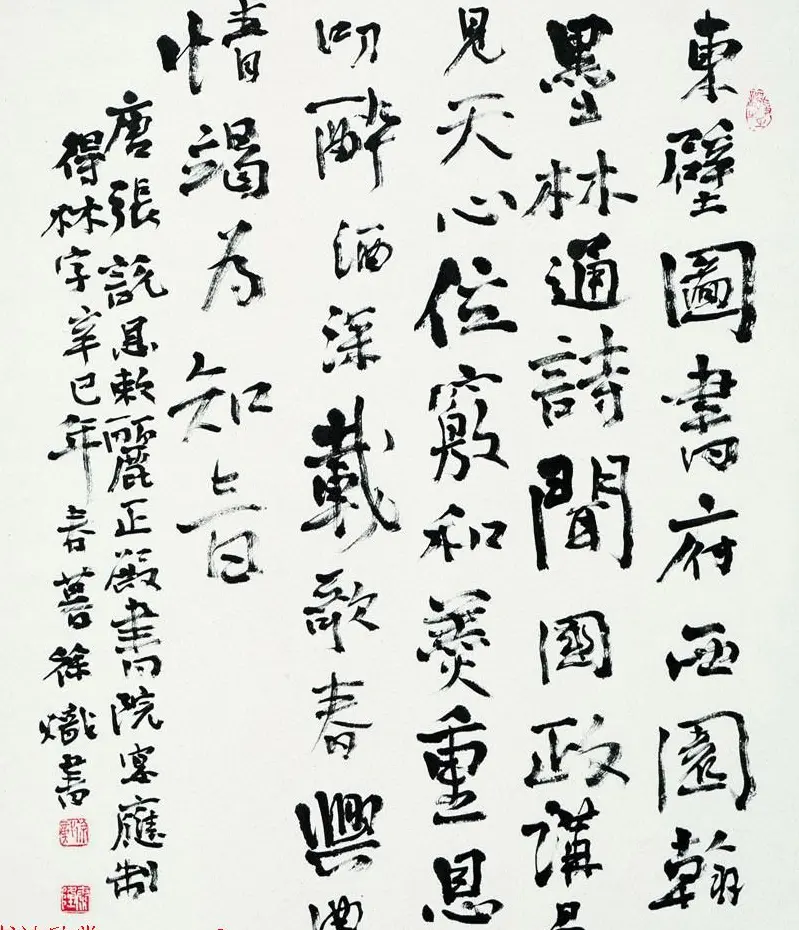 東壁圖書府西園翰
墨林通詩聞國政講易
見天心位竅和羹重恩
叨醉酒深載歌春興曲
情竭为知音
唐張說恩敕麗正殿書院宴應制
得林字辛巳年春暮徐熾書